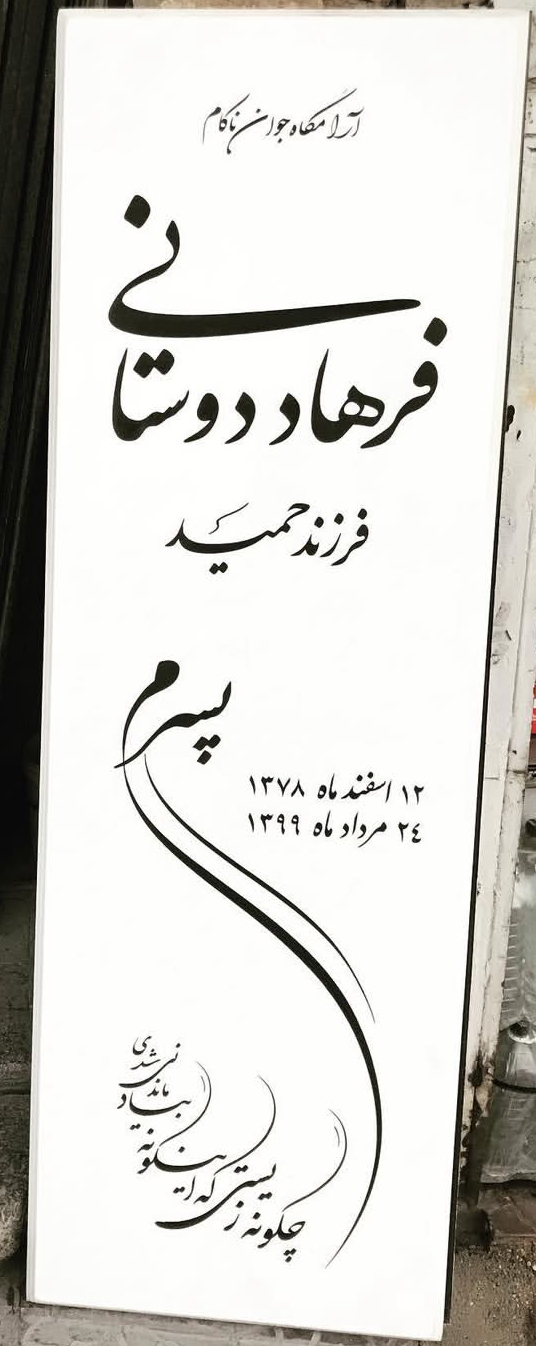 آرامگاه جوان ناکام
فرهاد دوستانی
فرزند حمید
پسرم
۱۲ اسفند ماه ۱۳۷۸
۲۴ مرداد ماه ۱۳۹۹
چگونه زیستی که اینگونه
بیاد ماندنی شدی